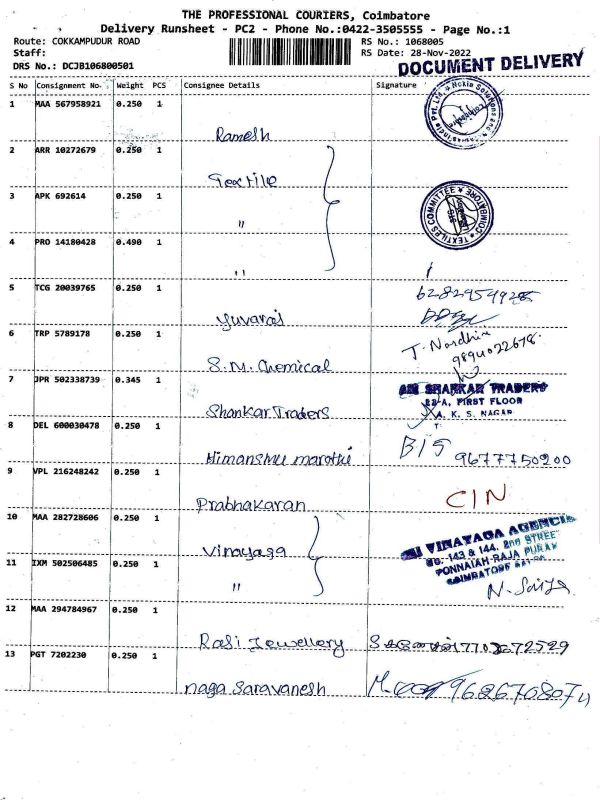 THE PROFESSIONAL COURIERS, Coimbatore
Delivery Runsheet - PC2 - Phone No.:0422-3505555 - Page No.:1
Route: COKKAMPUDUR ROAD RS No.: 1068005
Staff: RS Date: 28-Nov-2022
DRS No.: DCJB106800501 DOCUMENT DELIVERY
S No Consignment No. Weight PCS Consignee Details Signature
1 MAA 567958921 0.250 1
Ramesh
2 ARR 10272679 0.250 1
Textile
TEXTILES COMMITTEE COIMBATORE
3 APK 692614 0.250 1
"
4 PRO 14180428 0.490 1
"
5 TCG 20039765 0.250 1
Yuvaraj
6 TRP 5789178 0.250 1
T. Nandhin
9894022678
S.M. Chemical
7 JPR 502338739 0.345 1
SHANKAR TRADERS
FIRST FLOOR
K. S. NAGAR
Shankar Traders
8 DEL 600030478 0.250 1
Himanshu marothi
9677750200
9 VPL 216248242 0.250 1
CIN
Prabhakaran
10 MAA 282728606 0.250 1
Vinayaga
VINAYAGA AGENCIES
143 & 144, 2nd STREET
PONNAIAH RAJA PURAM
COIMBATORE
11 IXM 502506485 0.250 1
"
12 MAA 294784967 0.250 1
Rasi Jewellery
13 PGT 7202230 0.250 1
naga Saravanesh